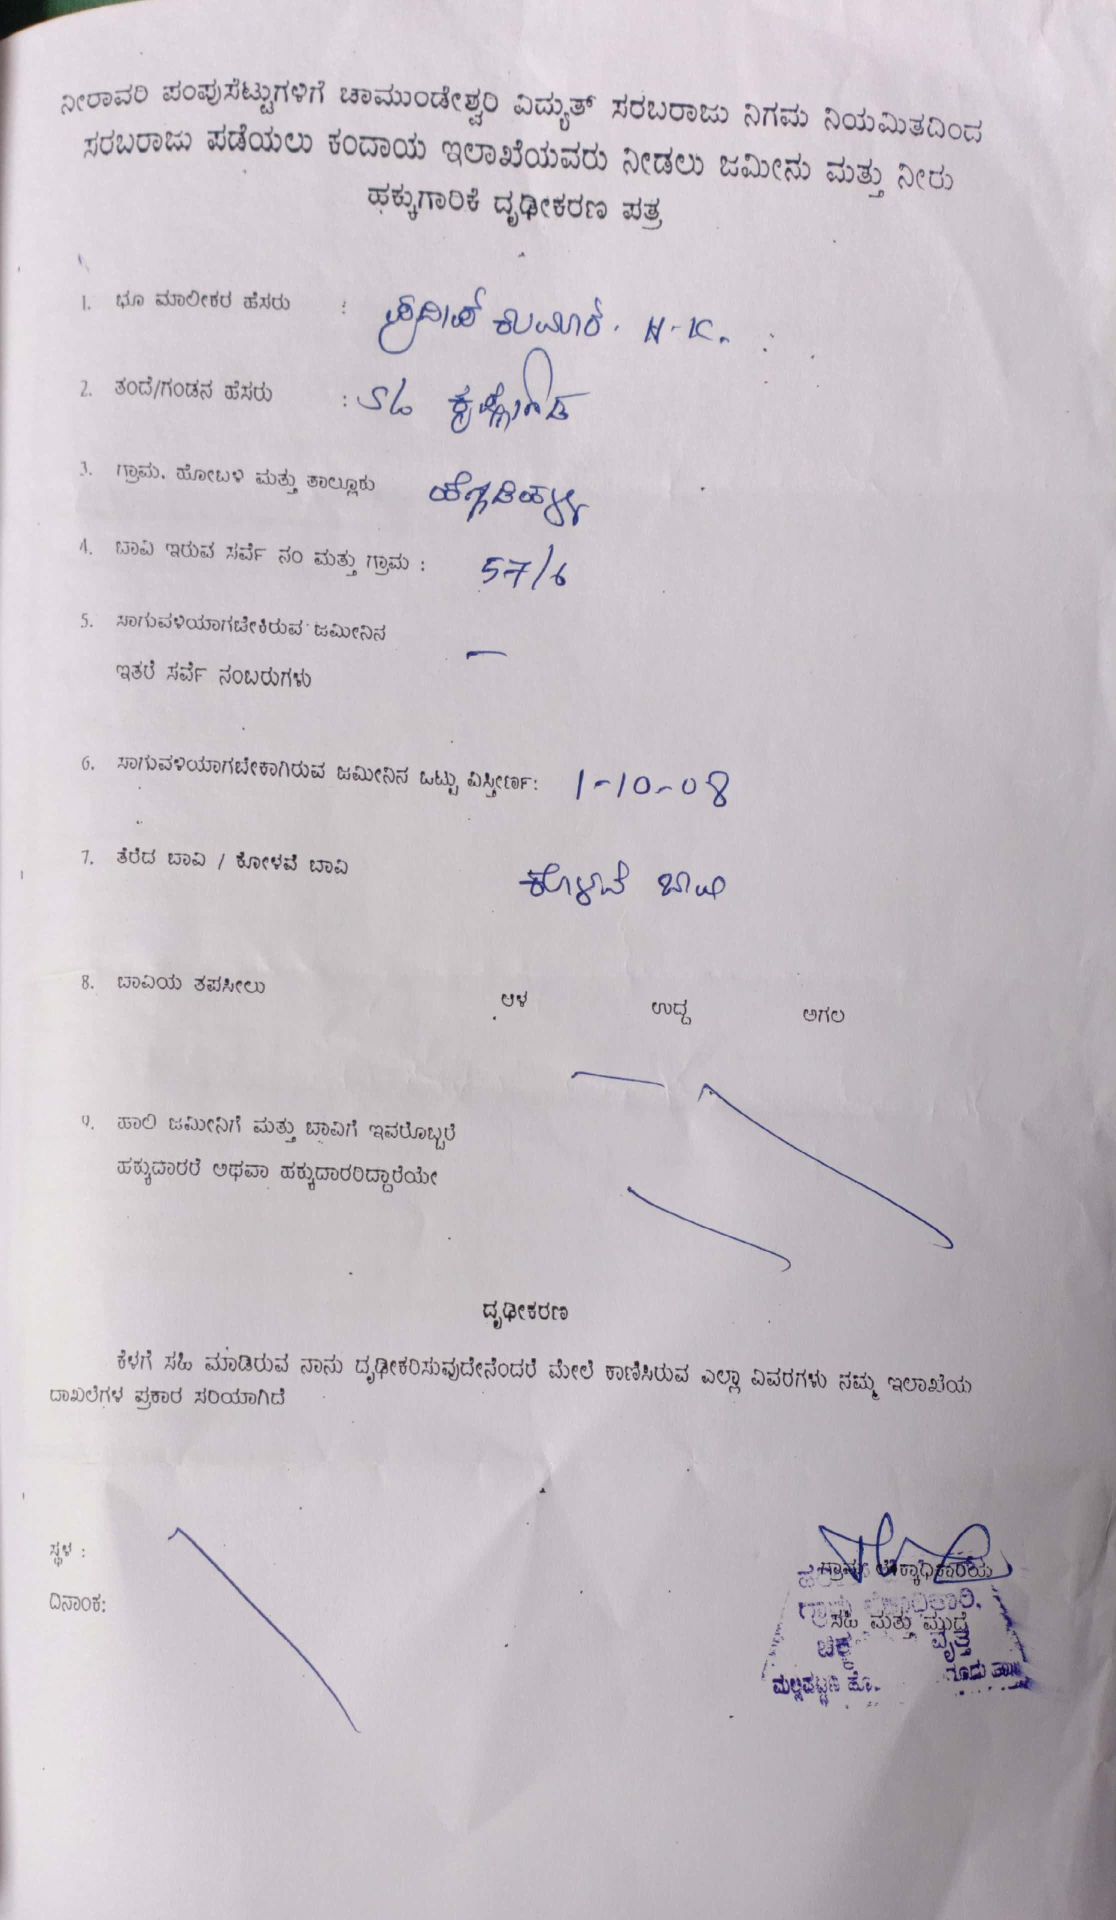 ನೀರಾವರಿ ಪಂಪುಸೆಟ್ಟುಗಳಿಗೆ ಚಾಮುಂಡೇಶ್ವರಿ ವಿದ್ಯುತ್ ಸರಬರಾಜು ನಿಗಮ ನಿಯಮಿತದಿಂದ
ಸರಬರಾಜು ಪಡೆಯಲು ಕಂದಾಯ ಇಲಾಖೆಯವರು ನೀಡಲು ಜಮೀನು ಮತ್ತು ನೀರು
ಹಕ್ಕುಗಾರಿಕೆ ದೃಢೀಕರಣ ಪತ್ರ
1. ಭೂ ಮಾಲೀಕರ ಹೆಸರು : ಪ್ರದೀಪ್ ಕುಮಾರ್. H-K.
2. ತಂದೆ/ಗಂಡನ ಹೆಸರು : S/o ಕೃಷ್ಣೇಗೌಡ
3. ಗ್ರಾಮ, ಹೋಬಳಿ ಮತ್ತು ತಾಲ್ಲೂಕು
4. ಬಾವಿ ಇರುವ ಸರ್ವೆ ನಂ ಮತ್ತು ಗ್ರಾಮ : 57/6
5. ಸಾಗುವಳಿಯಾಗಬೇಕಿರುವ ಜಮೀನಿನ —
ಇತರೆ ಸರ್ವೆ ನಂಬರುಗಳು
6. ಸಾಗುವಳಿಯಾಗಬೇಕಾಗಿರುವ ಜಮೀನಿನ ಒಟ್ಟು ವಿಸ್ತೀರ್ಣ: 1-10-08
7. ತೆರೆದ ಬಾವಿ / ಕೋಳವೆ ಬಾವಿ ಕೊಳವೆ ಬಾವಿ
8. ಬಾವಿಯ ತಪಸೀಲು ಆಳ ಉದ್ದ ಅಗಲ
9. ಹಾಲಿ ಜಮೀನಿಗೆ ಮತ್ತು ಬಾವಿಗೆ ಇವರೊಬ್ಬರೆ
ಹಕ್ಕುದಾರರೆ ಅಥವಾ ಹಕ್ಕುದಾರರಿದ್ದಾರೆಯೇ
ದೃಢೀಕರಣ
ಕೆಳಗೆ ಸಹಿ ಮಾಡಿರುವ ನಾನು ದೃಢೀಕರಿಸುವುದೇನೆಂದರೆ ಮೇಲೆ ಕಾಣಿಸಿರುವ ಎಲ್ಲಾ ವಿವರಗಳು ನಮ್ಮ ಇಲಾಖೆಯ
ದಾಖಲೆಗಳ ಪ್ರಕಾರ ಸರಿಯಾಗಿದೆ
ಸ್ಥಳ :
ದಿನಾಂಕ:
ಗ್ರಾಮ ಲೆಕ್ಕಾಧಿಕಾರಿಯ
ಸಹಿ ಮತ್ತು ಮುದ್ರೆ
ಮಲ್ಲಪಟ್ಟಣ ಹೋ.